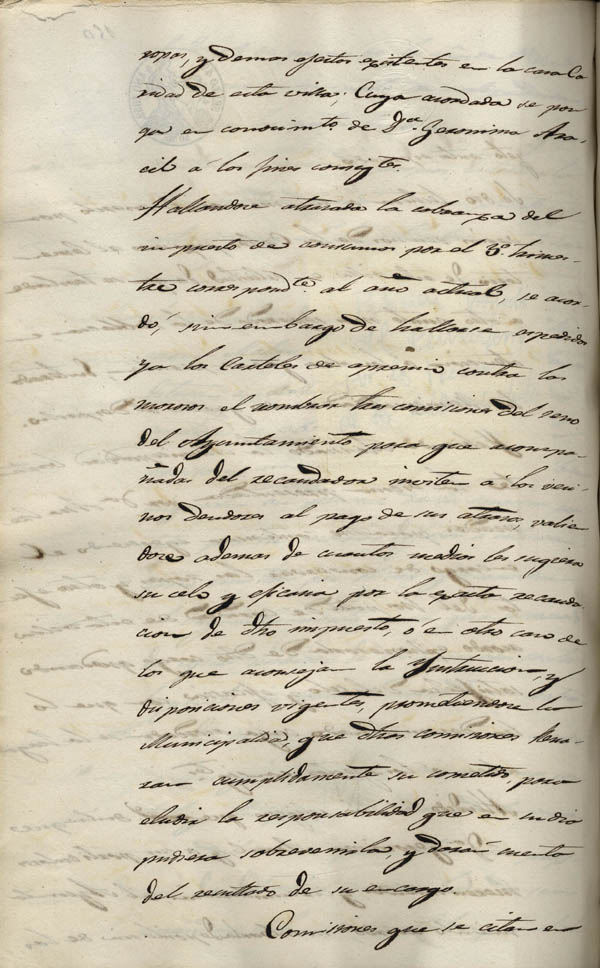 ropas, y demas efectos existentes en la casa Ca
ridad de esta villa; Cuya acordada se pon
ga en conocimto. de Da. Geronima Ara
cil á los fines consigtes.
Hallandose atrasada la cobranza del
impuesto de consumos por el 3o. trimes-
tre correspondte. al año actual, se acor-
dó, sin embargo de hallarse expedidos
ya los Carteles de apremio contra los
morosos el nombrar tres comisiones del seno
del Ayuntamiento para que acompa-
ñadas del recaudador inviten á los veci-
nos deudores al pago de sus atrasos, valien
dose ademas de cuantos medios les sugiera
su celo y eficacia por la exacta recauda-
cion de dho impuesto, ó en otro caso de
los que aconsejan la Instruccion, y
disposiciones vigentes, prometiendose la
Municipalidad, que dhas comisiones llena-
ran cumplidamente su cometido, para
eludir la responsabilidad que en su dia
pudiera sobrevenirla, y daran cuenta
del resultado de su encargo.
Comisiones que se citan en